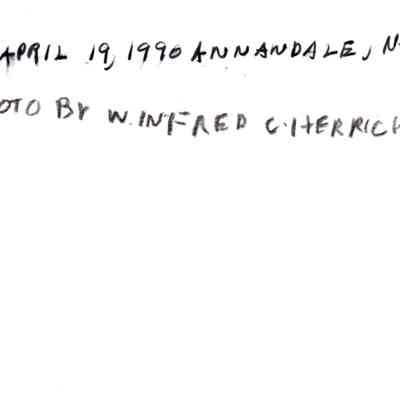 APRIL 19, 1990 ANNANDALE, N
OTO BY WINFRED C. HERRICK